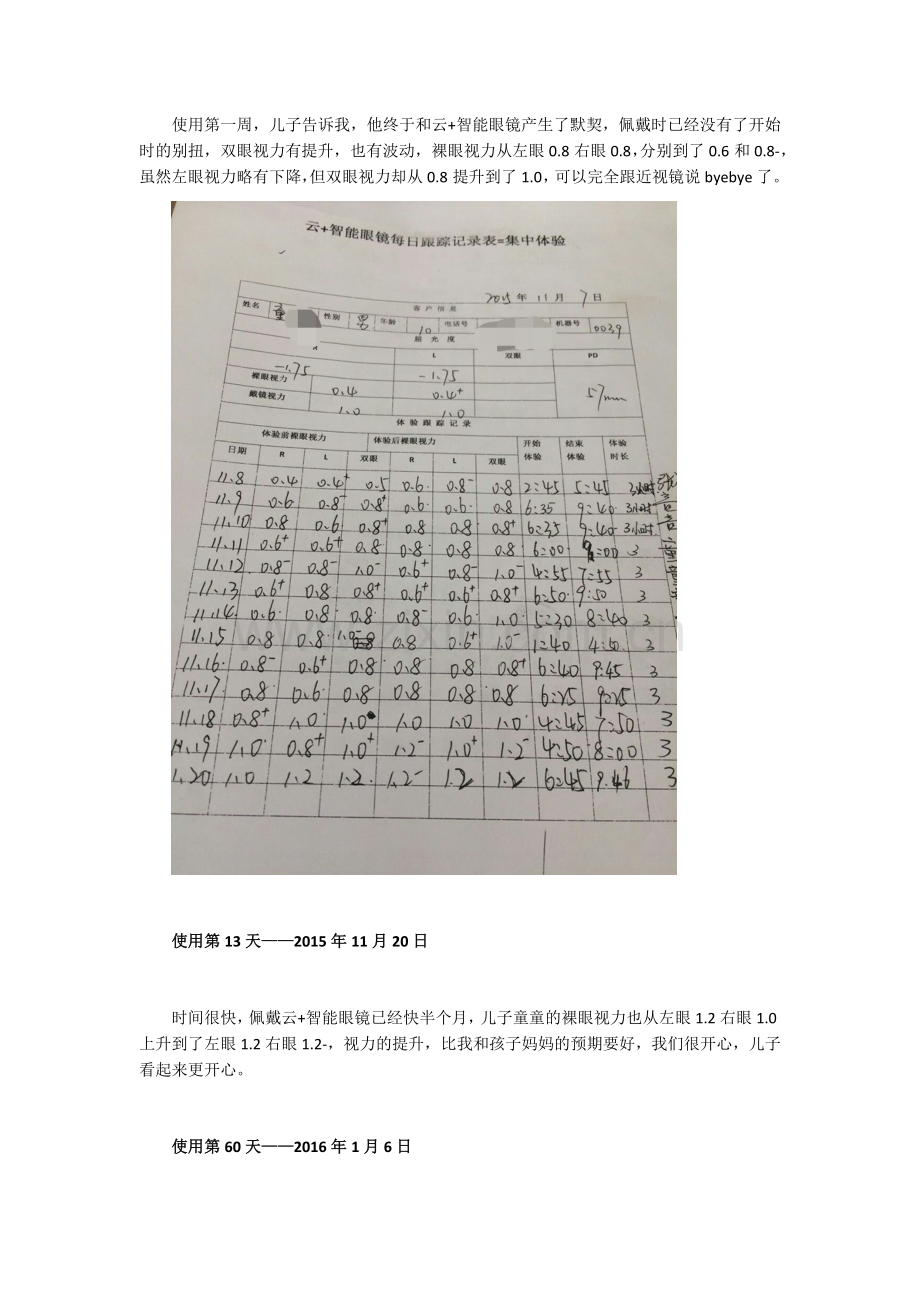 使用第一周，儿子告诉我，他终于和云+智能眼镜产生了默契，佩戴时已经没有了开始
时的别扭，双眼视力有提升，也有波动，裸眼视力从左眼 0.8 右眼 0.8，分别到了 0.6 和 0.8-，
虽然左眼视力略有下降，但双眼视力却从 0.8 提升到了 1.0，可以完全跟近视镜说 byebye 了。
云+智能眼镜每日跟踪记录表=集中体验
2015 年 11 月 7 日
客户信息
姓名 童 性别 男 年龄 10 电话号 机器号 0039
屈光度
L 双眼 PD
-1.75 -1.75
裸眼视力 0.4 0.4+ 57mm
戴镜视力 1.0 1.0
体验跟踪记录
体验前裸眼视力 体验后裸眼视力 开始体验 结束体验 体验时长
日期 R L 双眼 R L 双眼
11.8 0.4 0.4+ 0.5 0.6 0.8- 0.8 2:45 5:45 3小时
11.9 0.6 0.8- 0.8+ 0.6 0.6 0.8 6:35 9:40 3小时
11.10 0.8 0.6 0.8+ 0.8 0.8 0.8+ 6:35 9:40 3小时
11.11 0.6+ 0.6+ 0.8 0.8 0.8 0.8 6:00 9:00 3
11.12 0.8- 0.8- 1.0- 0.6+ 0.8- 1.0- 4:55 7:55 3
11.13 0.6+ 0.8 0.8+ 0.6+ 0.6+ 0.8+ 6:50 9:50 3
11.14 0.6 0.8 0.8 0.8- 0.6 1.0 5:30 8:40 3
11.15 0.8 0.8 1.0- 0.8 0.6+ 1.0- 1:40 4:40 3
11.16 0.8- 0.6+ 0.8 0.8 0.8 0.8+ 6:40 9:45 3
11.17 0.8 0.6 0.8 0.8 0.8 0.8 6:25 9:25 3
11.18 0.8+ 1.0 1.0 1.0 1.0 1.0 4:45 7:50 3
11.19 1.0 0.8+ 1.0+ 1.2- 1.0+ 1.2- 4:50 8:00 3
1.20 1.0 1.2 1.2 1.2- 1.2 1.2 6:45 9.46 3
使用第 13 天——2015 年 11 月 20 日
时间很快，佩戴云+智能眼镜已经快半个月，儿子童童的裸眼视力也从左眼 1.2 右眼 1.0
上升到了左眼 1.2 右眼 1.2-，视力的提升，比我和孩子妈妈的预期要好，我们很开心，儿子
看起来更开心。
使用第 60 天——2016 年 1 月 6 日